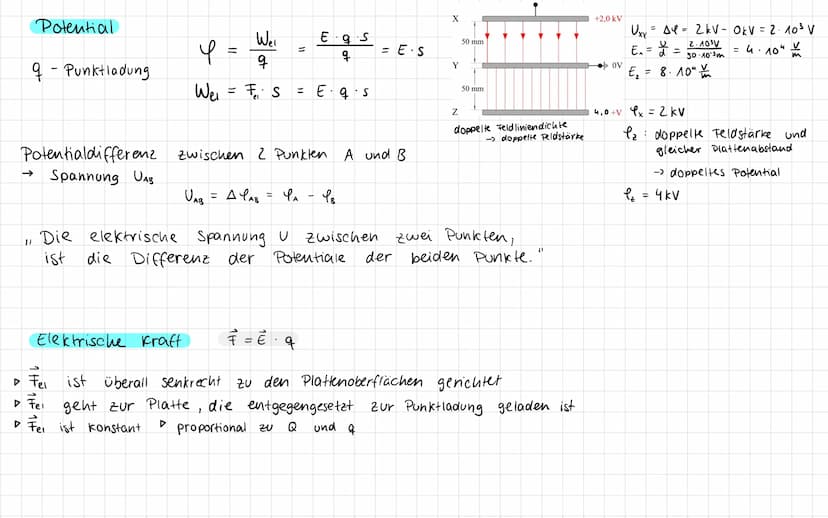 Potential
φ = Wel / q = E · q · s / q = E · s
q - Punktladung
Wel = Fel · s = E · q · s
X +2,0 kV
50 mm
Y 0V
50 mm
Z 4,0 +V
doppelte Feldliniendichte
→ doppelte Feldstärke
Uxy = Δφ = 2kV - 0kV = 2 · 10³ V
E₁ = U/d = 2·10³V / 50·10⁻³m = 4 · 10⁴ V/m
E₂ = 8 · 10⁴ V/m
φx = 2 kV
φz : doppelte Feldstärke und
gleicher Plattenabstand
→ doppeltes Potential
φz = 4kV
Potentialdifferenz zwischen 2 Punkten A und B
→ Spannung UAB
UAB = ΔφAB = φA - φB
„ Die elektrische Spannung U zwischen zwei Punkten,
ist die Differenz der Potentiale der beiden Punkte."
Elektrische Kraft F = E · q
▷ Fel ist überall senkrecht zu den Plattenoberflächen gerichtet
▷ Fel geht zur Platte, die entgegengesetzt zur Punktladung geladen ist
▷ Fel ist konstant ▷ proportional zu Q und q